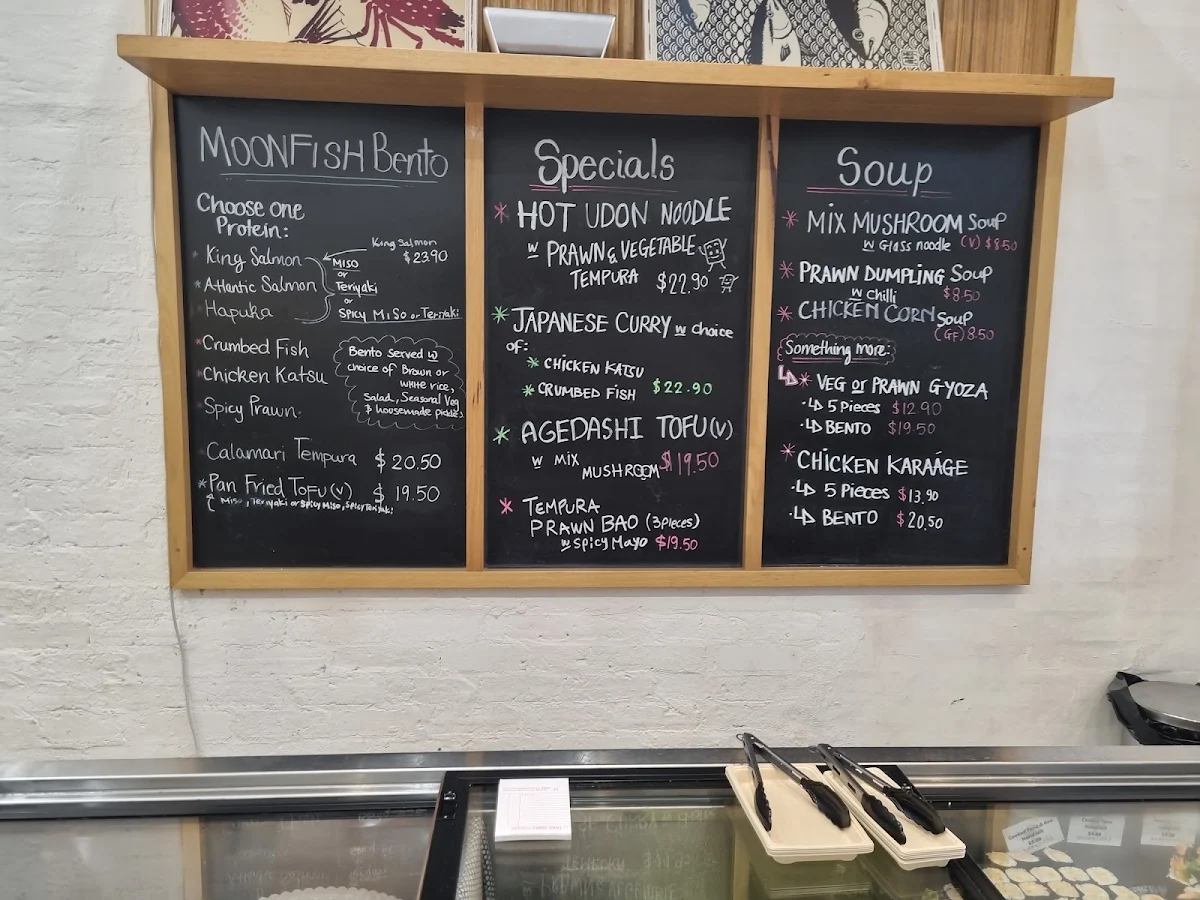 MOONFISH Bento
Choose one
Protein:
King Salmon
$23.90
* King Salmon
* Atlantic Salmon
* Hapuka
MISO
or
Teriyaki
or
SPICY MISO or Teriyaki
* Crumbed Fish
* Chicken Katsu
* Spicy Prawn
Bento served w
choice of Brown or
white rice,
Salad, Seasonal Veg
& housemade pickles
Calamari Tempura $20.50
* Pan Fried Tofu (v) $19.50
Miso, Teriyaki or Spicy Miso, Spicy Teriyaki
Specials
* HOT UDON NOODLE
w PRAWN & VEGETABLE
TEMPURA $22.90
* JAPANESE CURRY w choice
of:
* CHICKEN KATSU
* CRUMBED FISH $22.90
* AGEDASHI TOFU (v)
w MIX
MUSHROOM $19.50
* TEMPURA
PRAWN BAO (3 pieces)
w Spicy Mayo $19.50
Soup
* MIX MUSHROOM Soup
w Glass noodle (V) $8.50
* PRAWN DUMPLING Soup
w Chilli $8.50
* CHICKEN CORN Soup
(GF) 8.50
Something more:
* VEG or PRAWN GYOZA
5 Pieces $12.90
BENTO $19.50
* CHICKEN KARAÁGE
5 Pieces $13.90
BENTO $20.50